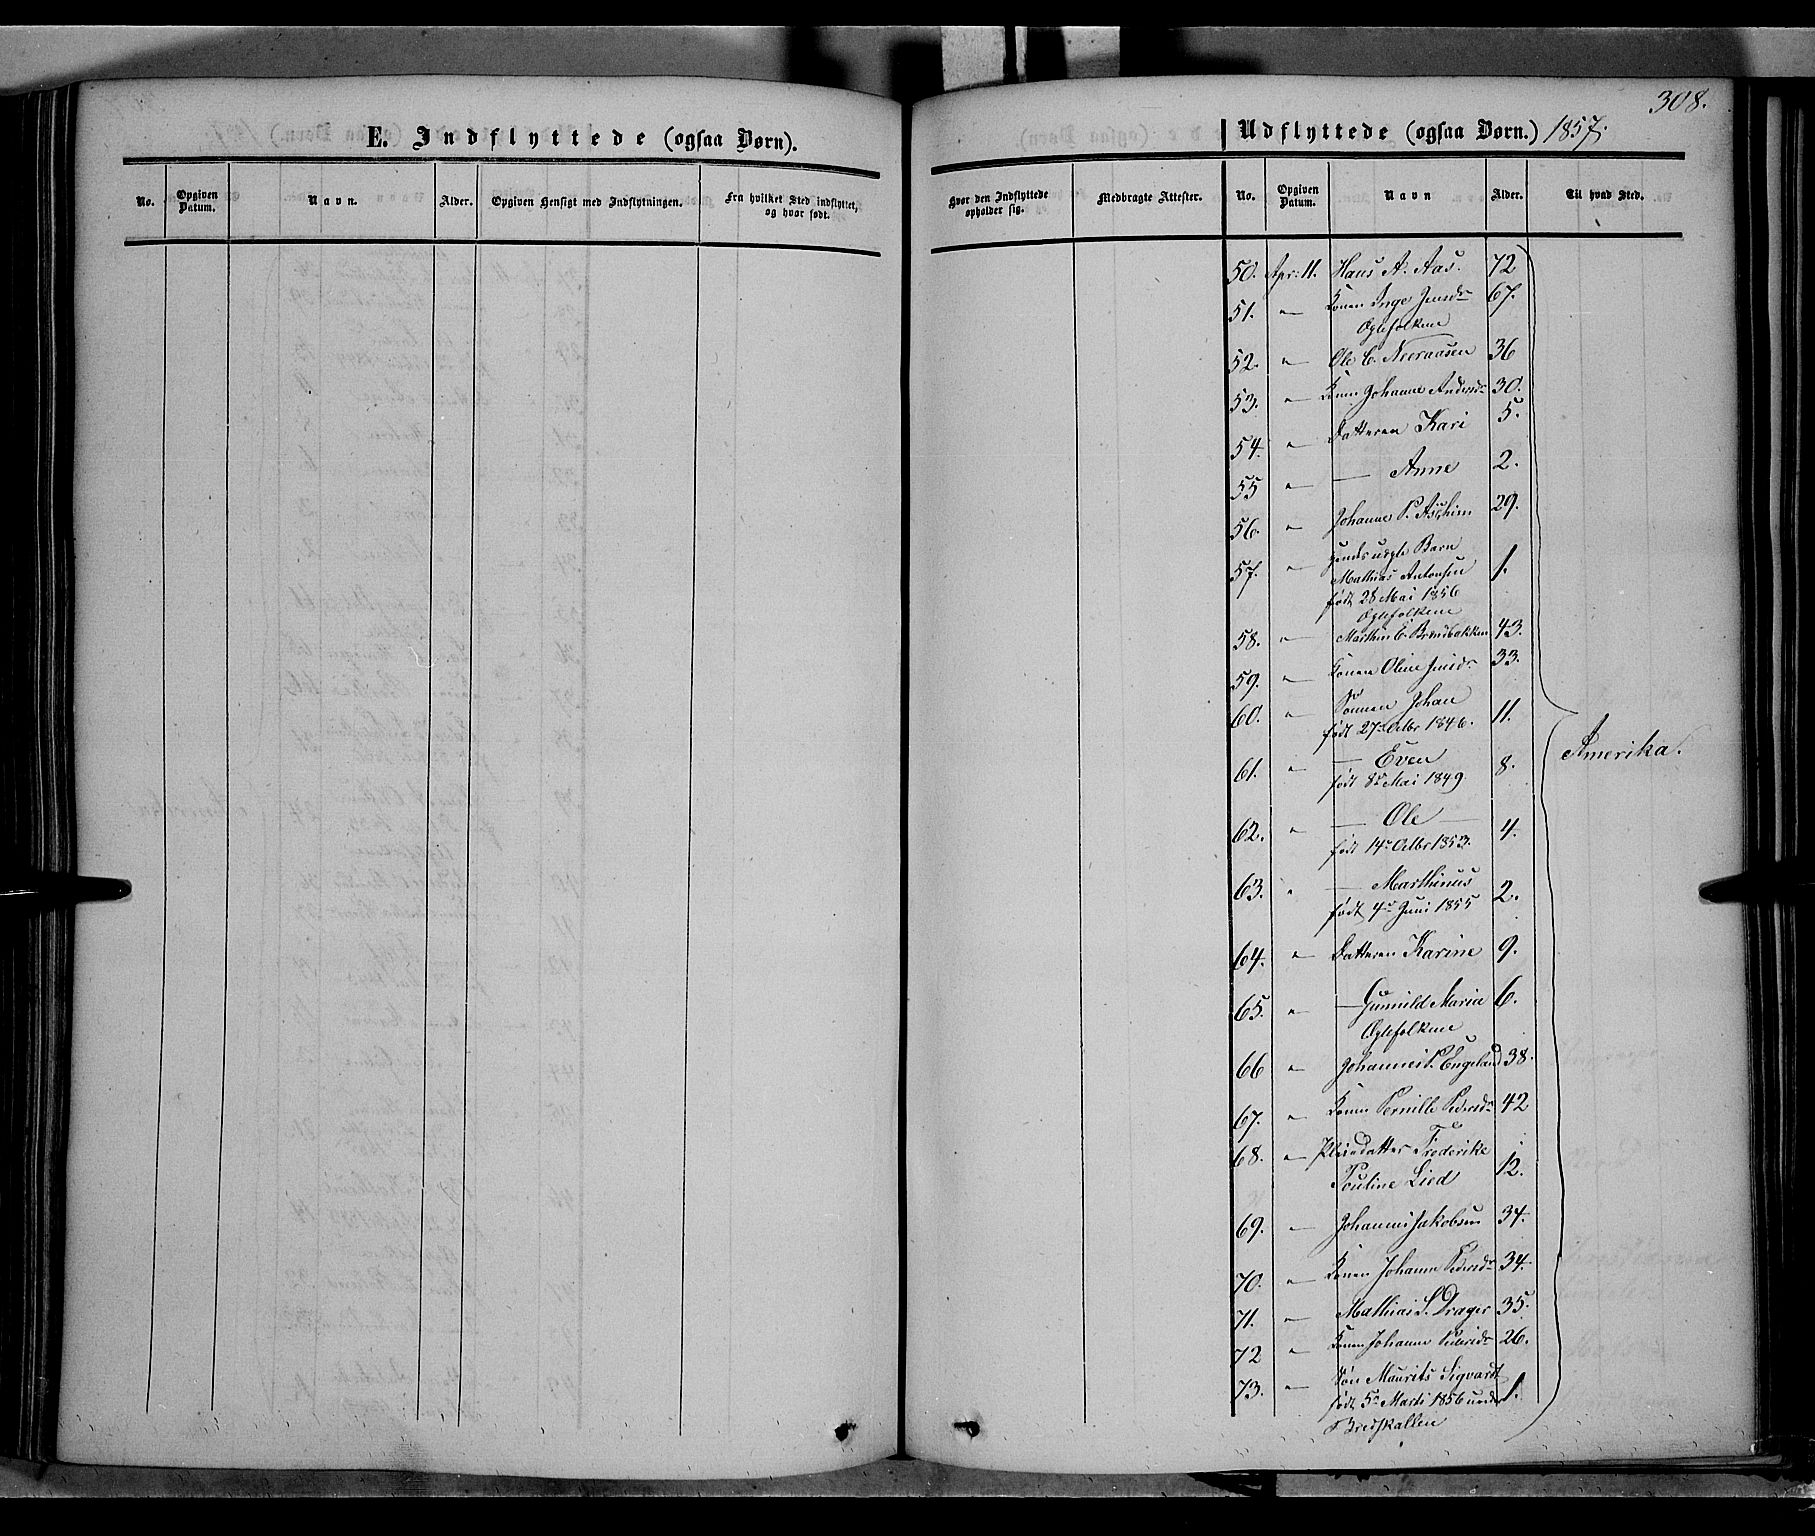 308.
E. Indflyttede (ogsaa Børn).
No. Opgiven Datum. Navn. Alder. Opgiven Hensigt med Indflytningen. Fra hvilket Sted indflyttet, og hvor født.
Udflyttede (ogsaa Børn.) 1857.
Hvor den Indflyttede opholder sig. Medbragte Attester. No. Opgiven Datum. Navn Alder. Til hvad Sted.
50. Apr: 11. Hans A. Aas. 72
51. " Konen Inge Jensdr 67.
Ægtefolkene
52. " Ole C. Neeraasen 36
53. " Konen Johanne Andersdr 30.
54. " Datteren Kari 5.
55 " — Anne 2.
56. " Johanne P. Aschim 29.
57. " hendes uægte Barn
Mathias Antonsen 1.
født 28 Mai 1856
Ægtefolkene
58. " Marthin E. Brendbakken 43.
59. " Konen Oline Jensdr 33.
60. " Sønnen Johan 11.
født 27de Octbr 1846.
61. " — Even 8.
født 8de Mai 1849.
62. " — Ole — 4.
født 14de Octbr 1853.
63. " — Marthinus 2.
født 4de Juni 1855
64. " Datteren Karine 9.
65. " — Gunnild Maria 6.
Ægtefolkene
66 " Johannes P. Engeland 38.
67. " Konen Pernille Pedersdr 42
68. " Pleiedatter Frederike
Pouline Lied 12.
69. " Johannes Jakobsen 34.
70. " Konen Johanne Pedersdr 34.
71. " Mathias S. Drager 35.
72 " Konen Johanne Pedersdr 26.
73. " Søn Maurits Sigvardt
født 5te Marts 1856 under 1.
Bredskallen
Amerika.